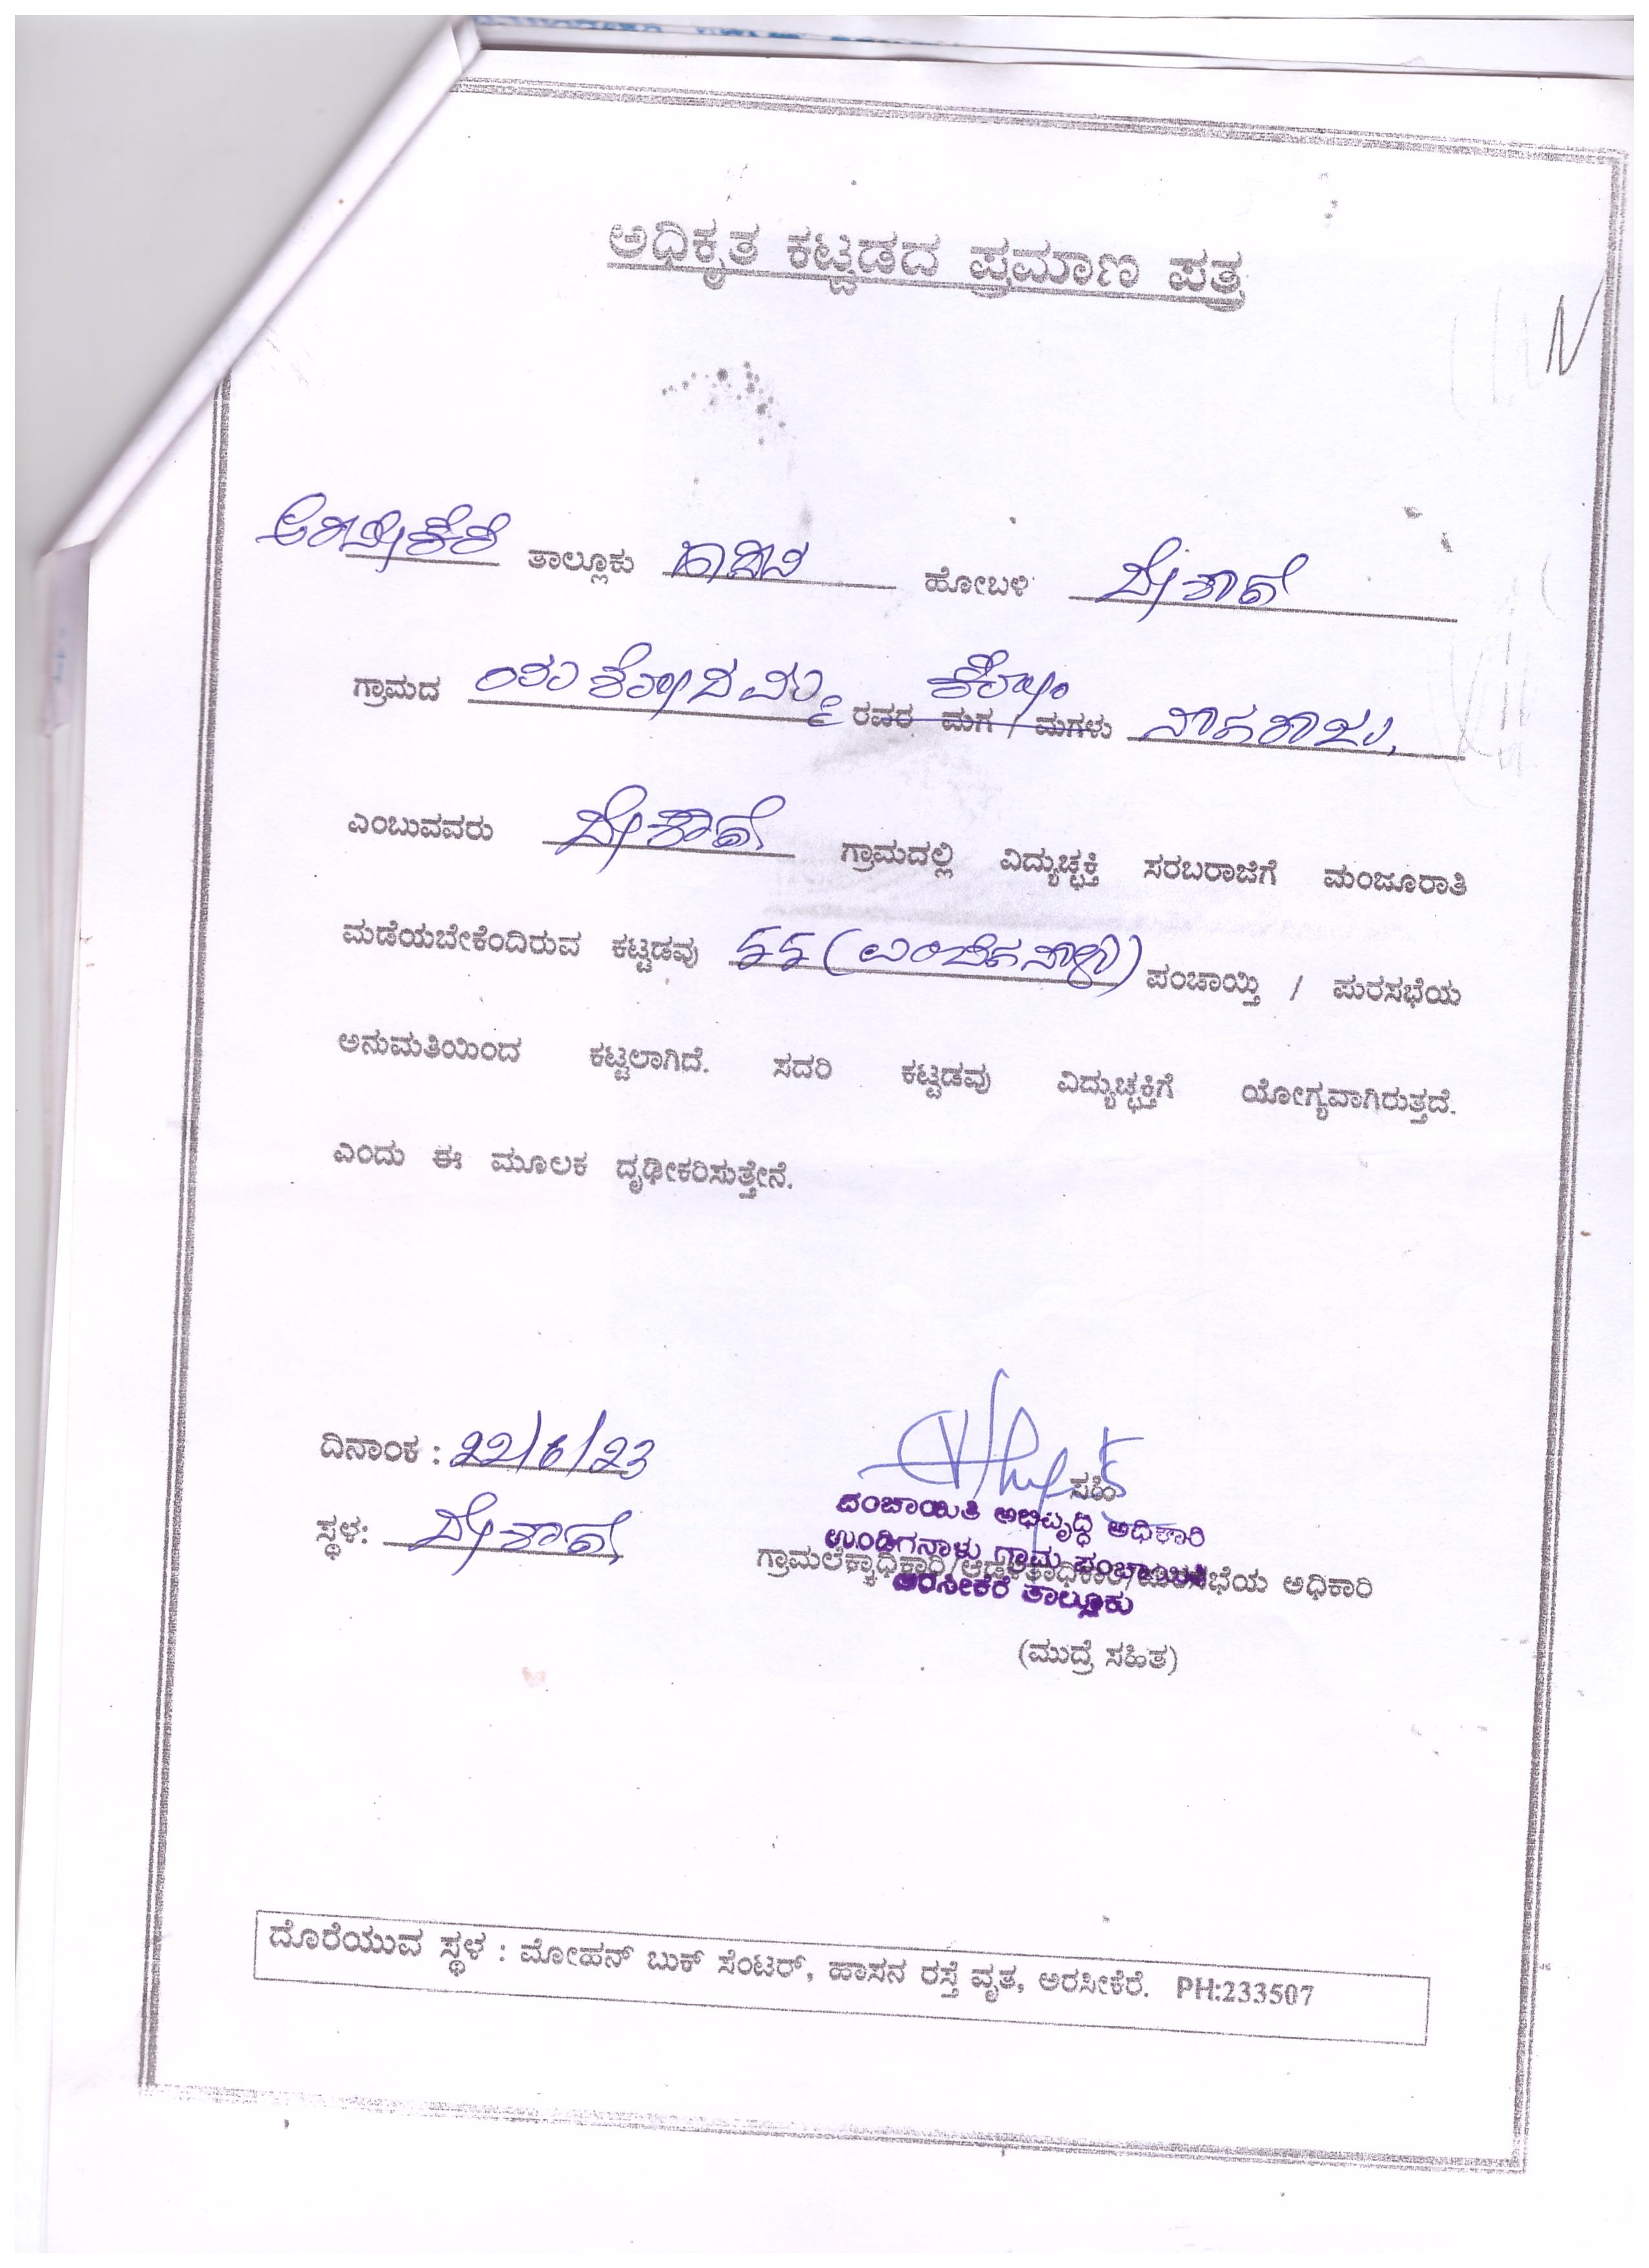 ಅಧಿಕೃತ ಕಟ್ಟಡದ ಪ್ರಮಾಣ ಪತ್ರ
ಅರಸೀಕೆರೆ ತಾಲ್ಲೂಕು ಹೋಬಳಿ
ಗ್ರಾಮದ ಯಶೋದಮ್ಮ ರವರ ಮಗ / ಮಗಳು ಕೋಂ ನಾಗರಾಜು
ಎಂಬುವವರು ಗ್ರಾಮದಲ್ಲಿ ವಿದ್ಯುಚ್ಛಕ್ತಿ ಸರಬರಾಜಿಗೆ ಮಂಜೂರಾತಿ
ಪಡೆಯಬೇಕೆಂದಿರುವ ಕಟ್ಟಡವು 55 ( ) ಪಂಚಾಯ್ತಿ / ಪುರಸಭೆಯ
ಅನುಮತಿಯಿಂದ ಕಟ್ಟಲಾಗಿದೆ. ಸದರಿ ಕಟ್ಟಡವು ವಿದ್ಯುಚ್ಛಕ್ತಿಗೆ ಯೋಗ್ಯವಾಗಿರುತ್ತದೆ.
ಎಂದು ಈ ಮೂಲಕ ದೃಢೀಕರಿಸುತ್ತೇನೆ.
ದಿನಾಂಕ : 22/6/23
ಸಹಿ
ಸ್ಥಳ:
ಪಂಚಾಯಿತಿ ಅಭಿವೃದ್ಧಿ ಅಧಿಕಾರಿ
ಉಂಡಿಗನಾಳು ಗ್ರಾಮ ಪಂಚಾಯಿತಿ
ಅರಸೀಕೆರೆ ತಾಲ್ಲೂಕು
ಗ್ರಾಮಲೆಕ್ಕಾಧಿಕಾರಿ/ಆಡಳಿತಾಧಿಕಾರಿ/ಪುರಸಭೆಯ ಅಧಿಕಾರಿ
(ಮುದ್ರೆ ಸಹಿತ)
ದೊರೆಯುವ ಸ್ಥಳ : ಮೋಹನ್ ಬುಕ್ ಸೆಂಟರ್, ಹಾಸನ ರಸ್ತೆ ವೃತ, ಅರಸೀಕೆರೆ. PH:233507